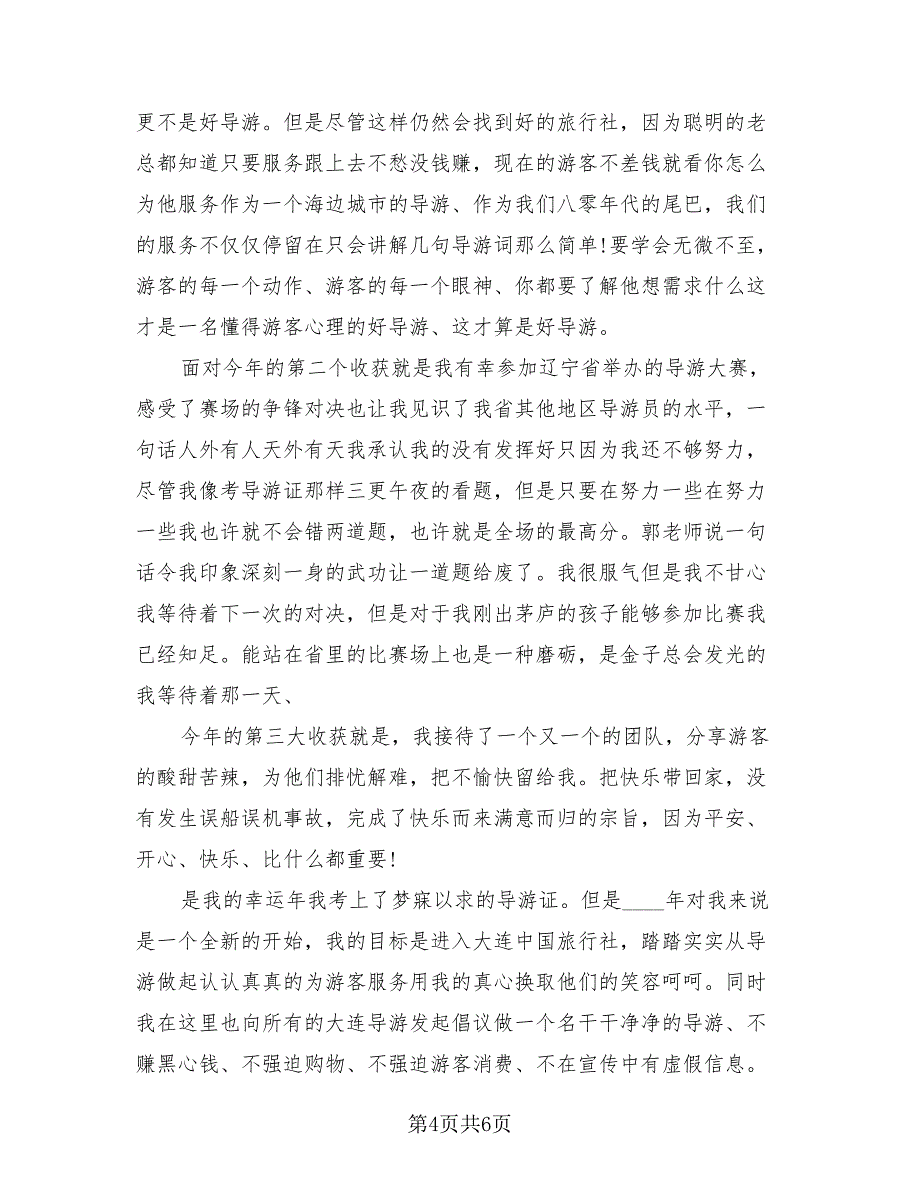 更不是好导游。但是尽管这样仍然会找到好的旅行社，因为聪明的老
总都知道只要服务跟上去不愁没钱赚，现在的游客不差钱就看你怎么
为他服务作为一个海边城市的导游、作为我们八零年代的尾巴，我们
的服务不仅仅停留在只会讲解几句导游词那么简单!要学会无微不至，
游客的每一个动作、游客的每一个眼神、你都要了解他想需求什么这
才是一名懂得游客心理的好导游、这才算是好导游。
面对今年的第二个收获就是我有幸参加辽宁省举办的导游大赛，
感受了赛场的争锋对决也让我见识了我省其他地区导游员的水平，一
句话人外有人天外有天我承认我的没有发挥好只因为我还不够努力，
尽管我像考导游证那样三更午夜的看题，但是只要在努力一些在努力
一些我也许就不会错两道题，也许就是全场的最高分。郭老师说一句
话令我印象深刻一身的武功让一道题给废了。我很服气但是我不甘心
我等待着下一次的对决，但是对于我刚出茅庐的孩子能够参加比赛我
已经知足。能站在省里的比赛场上也是一种磨砺，是金子总会发光的
我等待着那一天、
今年的第三大收获就是，我接待了一个又一个的团队，分享游客
的酸甜苦辣，为他们排忧解难，把不愉快留给我。把快乐带回家，没
有发生误船误机事故，完成了快乐而来满意而归的宗旨，因为平安、
开心、快乐、比什么都重要!
是我的幸运年我考上了梦寐以求的导游证。但是____年对我来说
是一个全新的开始，我的目标是进入大连中国旅行社，踏踏实实从导
游做起认认真真的为游客服务用我的真心换取他们的笑容呵呵。同时
我在这里也向所有的大连导游发起倡议做一个名干干净净的导游、不
赚黑心钱、不强迫购物、不强迫游客消费、不在宣传中有虚假信息。
第4页共6页